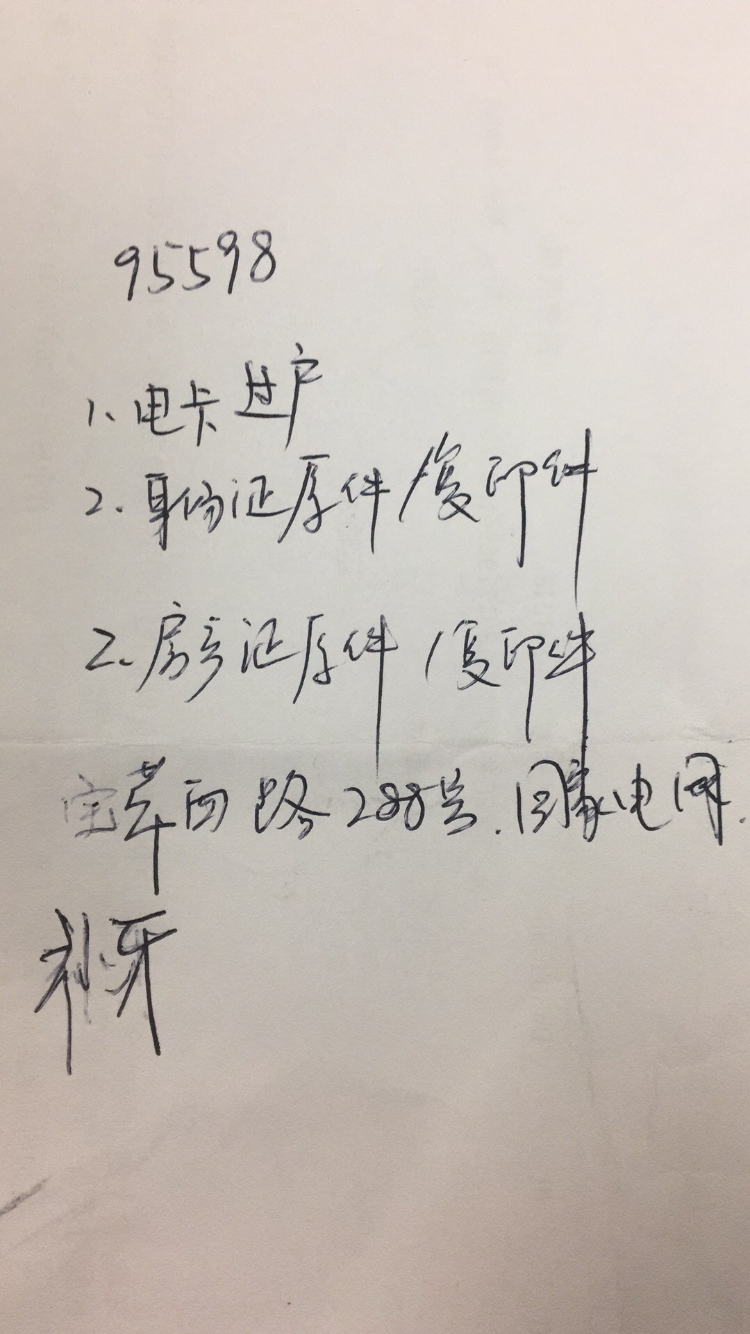 95598
1、电卡过户
2.身份证原件/复印件
2.房产证原件/复印件
宝荃西路288号.国家电网.
补牙